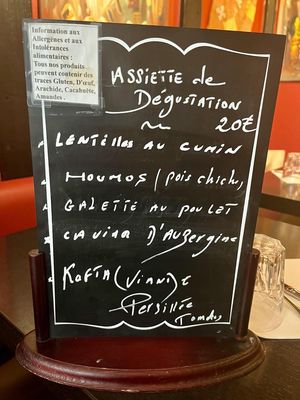 Information aux
Allergènes et aux
Intolérances
alimentaires :
Tous nos produits
peuvent contenir des
traces Gluten, D'œuf,
Arachide, Cacahuète,
Amandes.
ASSIETTE de
DÉGUSTATION
20€
LENTILLES AU CUMIN
HOUMOS / pois chich,
GALETTE AU POULET
CAVIAR D'AUBERGINE
KAFTA (VIANDE
PERSILLÉE
Tomates